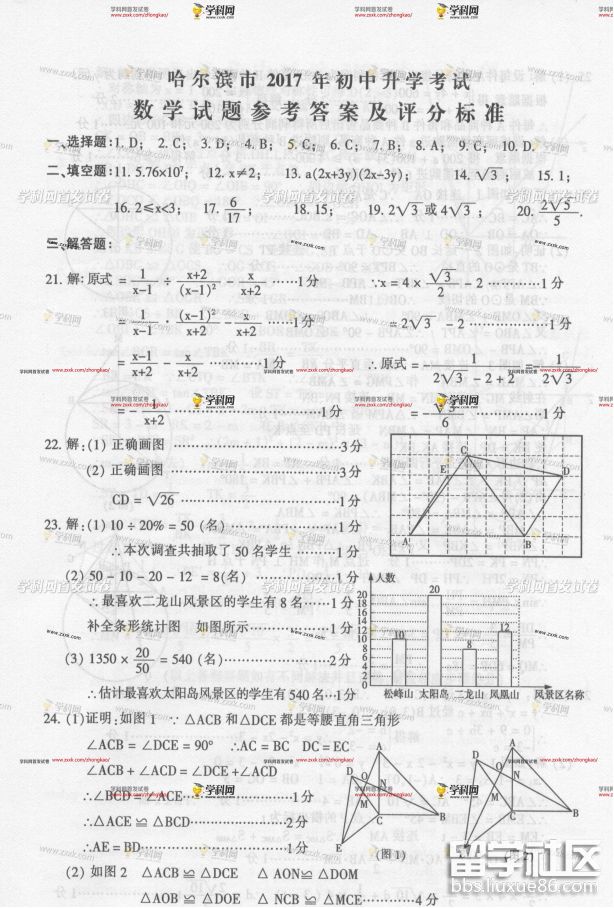 哈尔滨市 2017 年初中升学考试
数学试题参考答案及评分标准
一、选择题:1. D; 2. C; 3. D; 4. B; 5. C; 6. C; 7. B; 8. A; 9. C; 10. D.
二、填空题:11. 5.76×10⁷; 12. x≠2; 13. a(2x+3y)(2x-3y); 14. √3; 15. 1;
16. 2≤x<3; 17. 6/17; 18. 15; 19. 2√3 或 4√3; 20. 2√5/5.
三、解答题:
21. 解:原式 = 1/(x-1) ÷ (x+2)/(x-1)² - x/(x+2) ……1分
= 1/(x-1) · (x-1)²/(x+2) - x/(x+2) ……1分
= (x-1)/(x+2) - x/(x+2) ……1分
= - 1/(x+2) ……1分
∵x = 4 × √3/2 - 2 ……1分
= 2√3 - 2 ……1分
∴原式 = - 1/(2√3 - 2 + 2) = - 1/(2√3)
= - √3/6 ……1分
22. 解:(1) 正确画图 ……3分
(2) 正确画图 ……3分
CD = √26 ……1分
C
E
D
A
B
23. 解:(1) 10 ÷ 20% = 50 (名) ……1分
∴本次调查共抽取了 50 名学生 ……1分
(2) 50 - 10 - 20 - 12 = 8(名) ……1分
∴最喜欢二龙山风景区的学生有 8 名 ……1分
补全条形统计图 如图所示 ……1分
(3) 1350 × 20/50 = 540 (名) ……2分
∴估计最喜欢太阳岛风景区的学生有 540 名 …1分
人数
20
10
8
12
松峰山 太阳岛 二龙山 凤凰山 风景区名称
24. (1) 证明:如图 1 ∵ △ACB 和 △DCE 都是等腰直角三角形
∠ACB = ∠DCE = 90° ∴AC = BC DC = EC
∠ACB + ∠ACD = ∠DCE + ∠ACD
∴∠BCD = ∠ACE ……1分
∴△ACE ≌ △BCD ……2分
∴AE = BD ……1分
(2) 如图 2 △ACB ≌ △DCE △ AON ≌ △DOM
△AOB ≌ △DOE △ NCB ≌ △MCE ……4分
(图1)
(图2)
学科网
www.zxxk.com/zhongkao/
学科网首发试卷
留学社区
bbs.liuxue86.com